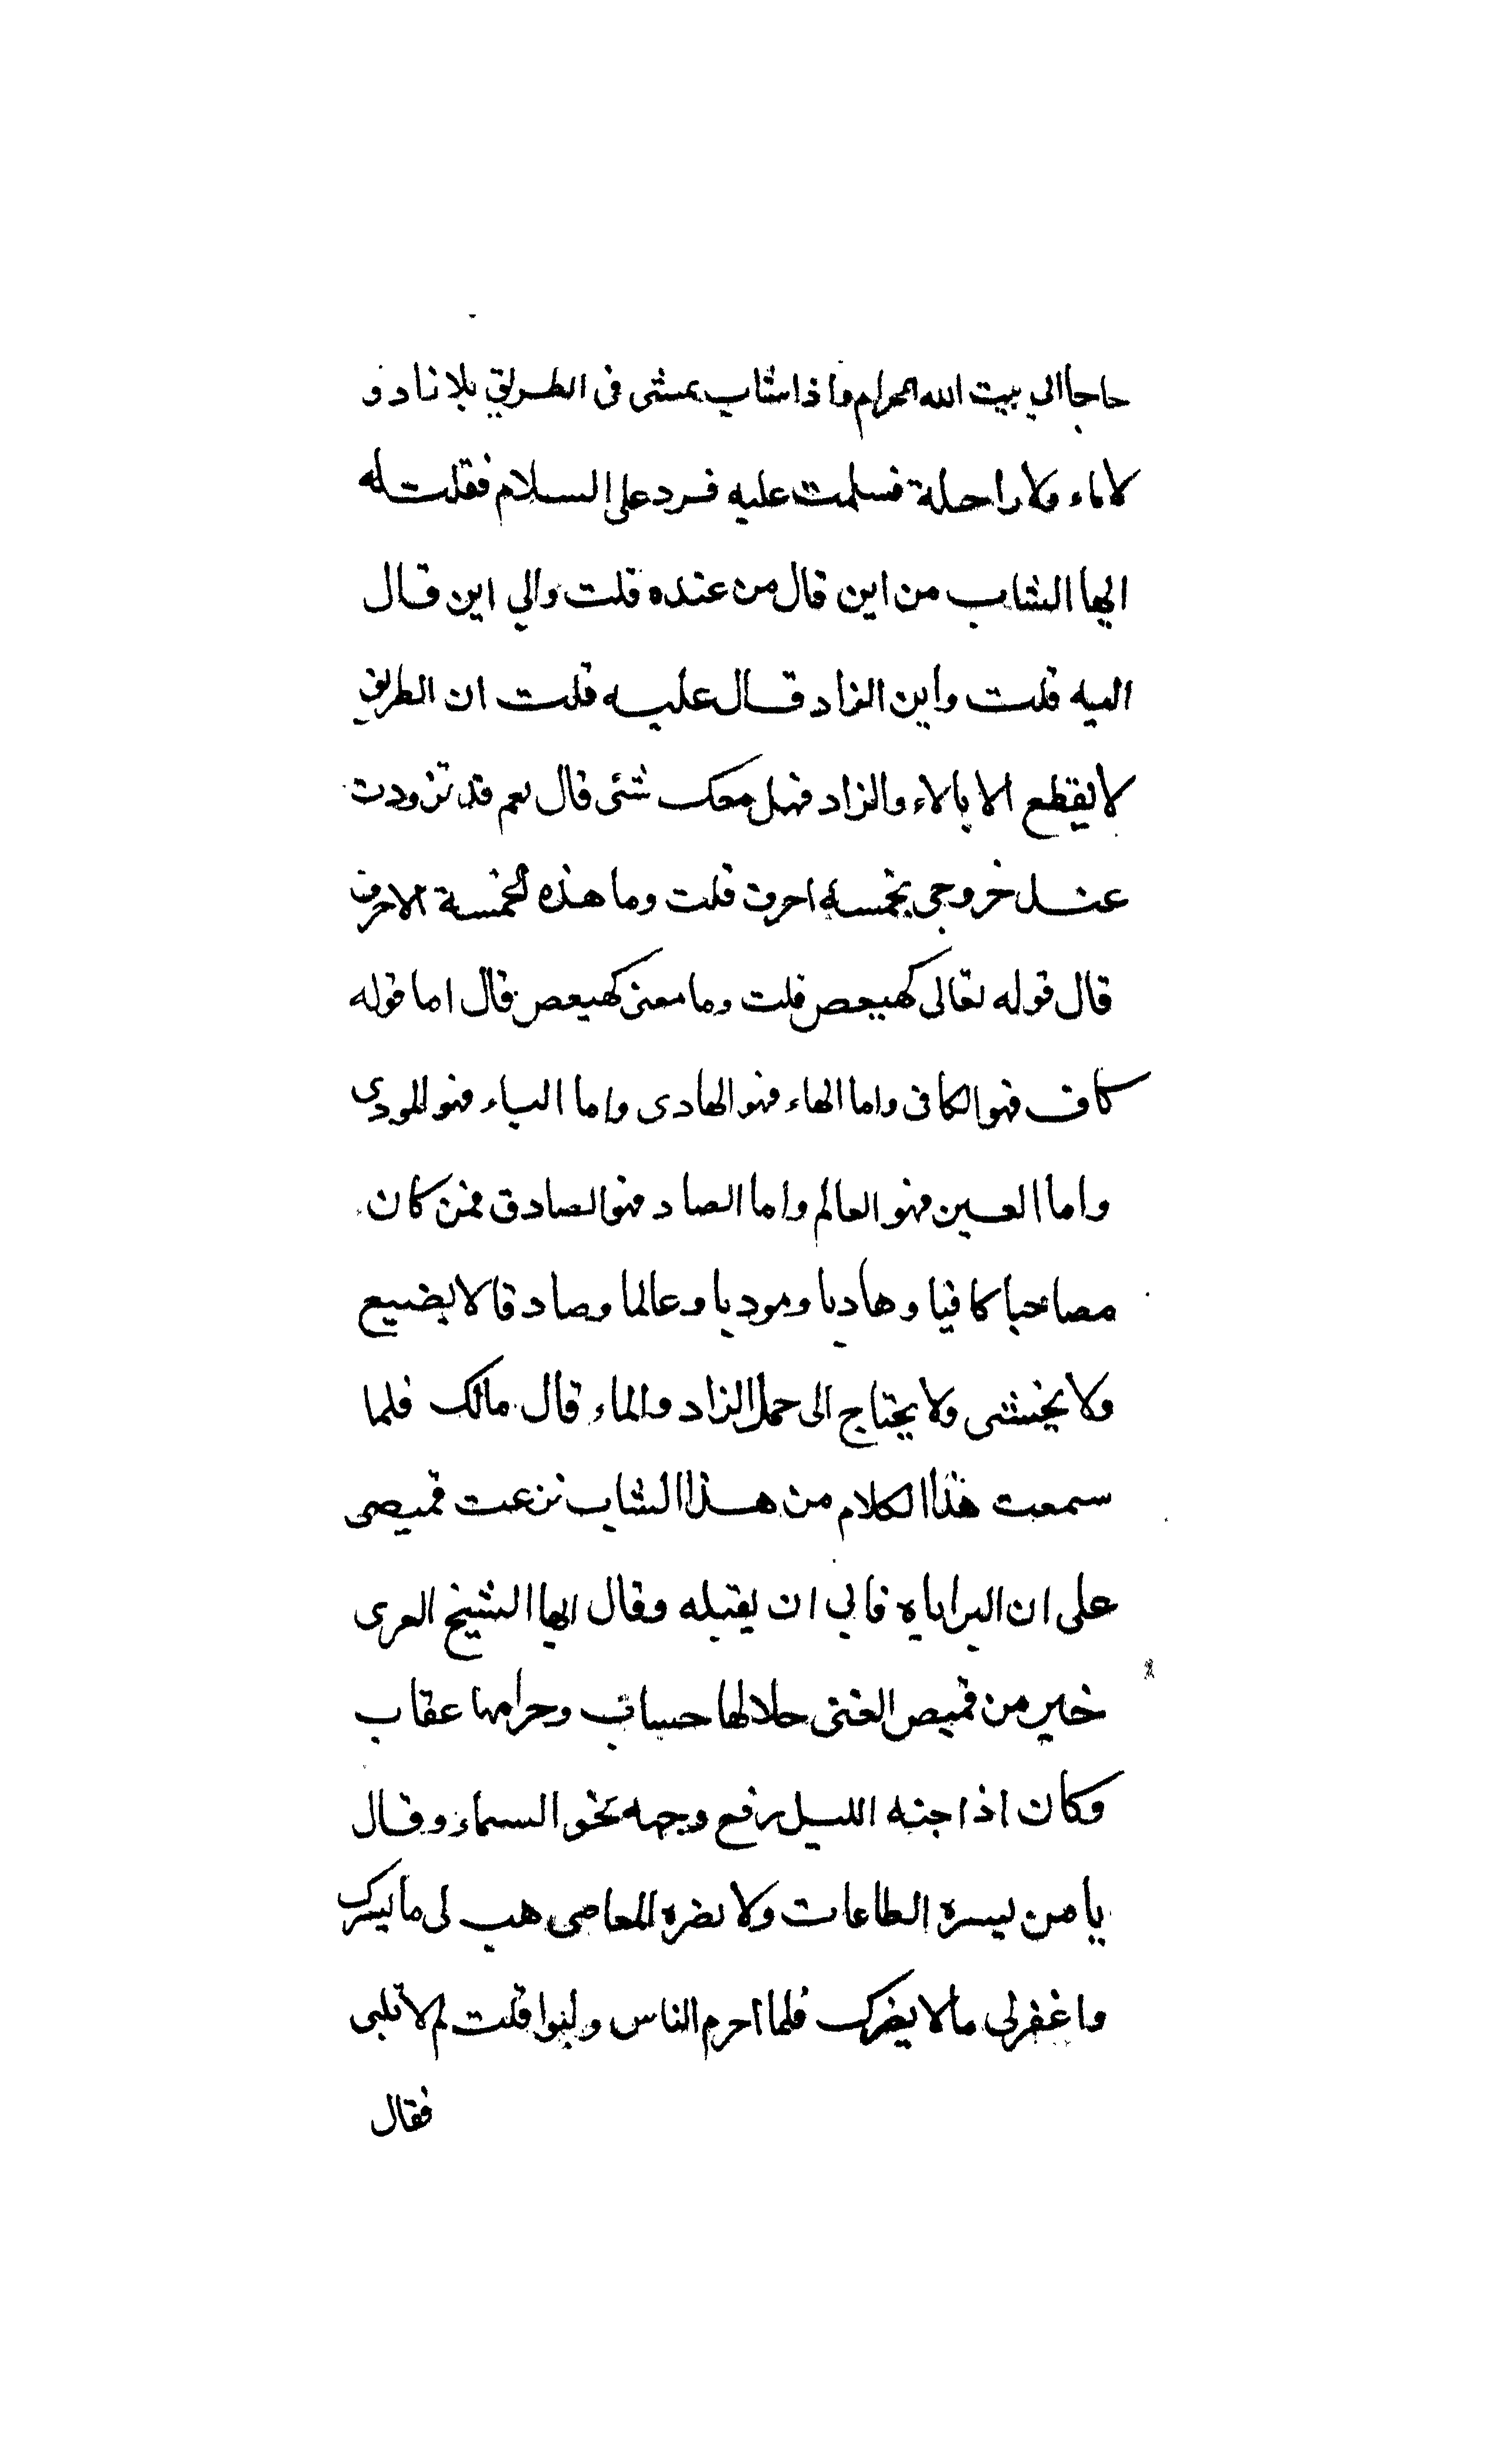 حاجا الي بيت الله الحرام واذا شاب يمشى فى الطريق بلا زاد و
لا ماء ولا راحلة فسلمت عليه فرد على السلام فقلت له
ايها الشاب من اين قال من عنده قلت والي اين قال
اليه قلت واين الزاد قال عليه قلت ان الطريق
لا يقطع الا بالماء والزاد فهل معك شئى قال نعم قد تزودت
عند خروجى بخمسة احرف قلت وما هذه الخمسة الاحرف
قال قوله تعالى كهيعص قلت وما معنى كهيعص قال اما قوله
كاف فهو الكافى واما الهاء فهو الهادى واما الياء فهو المودى
واما العين فهو العالم واما الصاد فهو الصادق فمن كان
مصاحبا كافيا وهاديا وموديا وعالما وصادقا لا يضيع
ولا يخشى ولا يحتاج الى حمل الزاد والماء قال مالك فلما
سمعت هذا الكلام من هذا الشاب نزعت قميصى
على ان البراياه فابي ان يقبله وقال ايها الشيخ العرى
خير من قميص الغنى حلالها حساب وحرامها عقاب
وكان اذا جنه الليل رفع وجهه نحو السماء وقال
يا من يسره الطاعات ولا يضره المعاصى هب لى ما يسرك
واغفرلى ما لا يضرك فلما احرم الناس ولبوا قلت لم لا تلبى
فقال